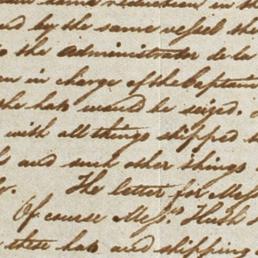 same reduction in th
by the same vessel the
the Administrador de la
in charge of the Captain
the hats would be seized.
with all things shipped
and such other things
The letter for Mess
Of course Mess.rs Hugh
these hats and shipping